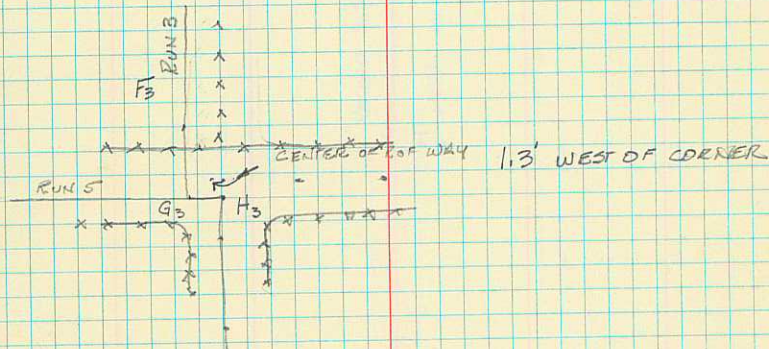 RUN 3
F3
CENTER OF R OF WAY
1.3' WEST OF CORNER
RUN 5
G3
H3